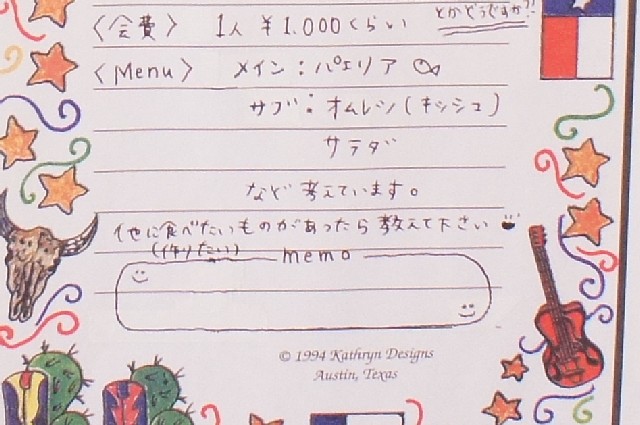 とかどうですか?!
〈会費〉 1人 ¥1.000くらい
〈Menu〉 メイン:パエリア
サブ:オムレツ(キッシュ)
サラダ
など考えています。
他に食べたいものがあったら教えて下さい
(作りたい)
memo
© 1994 Kathryn Designs
Austin, Texas